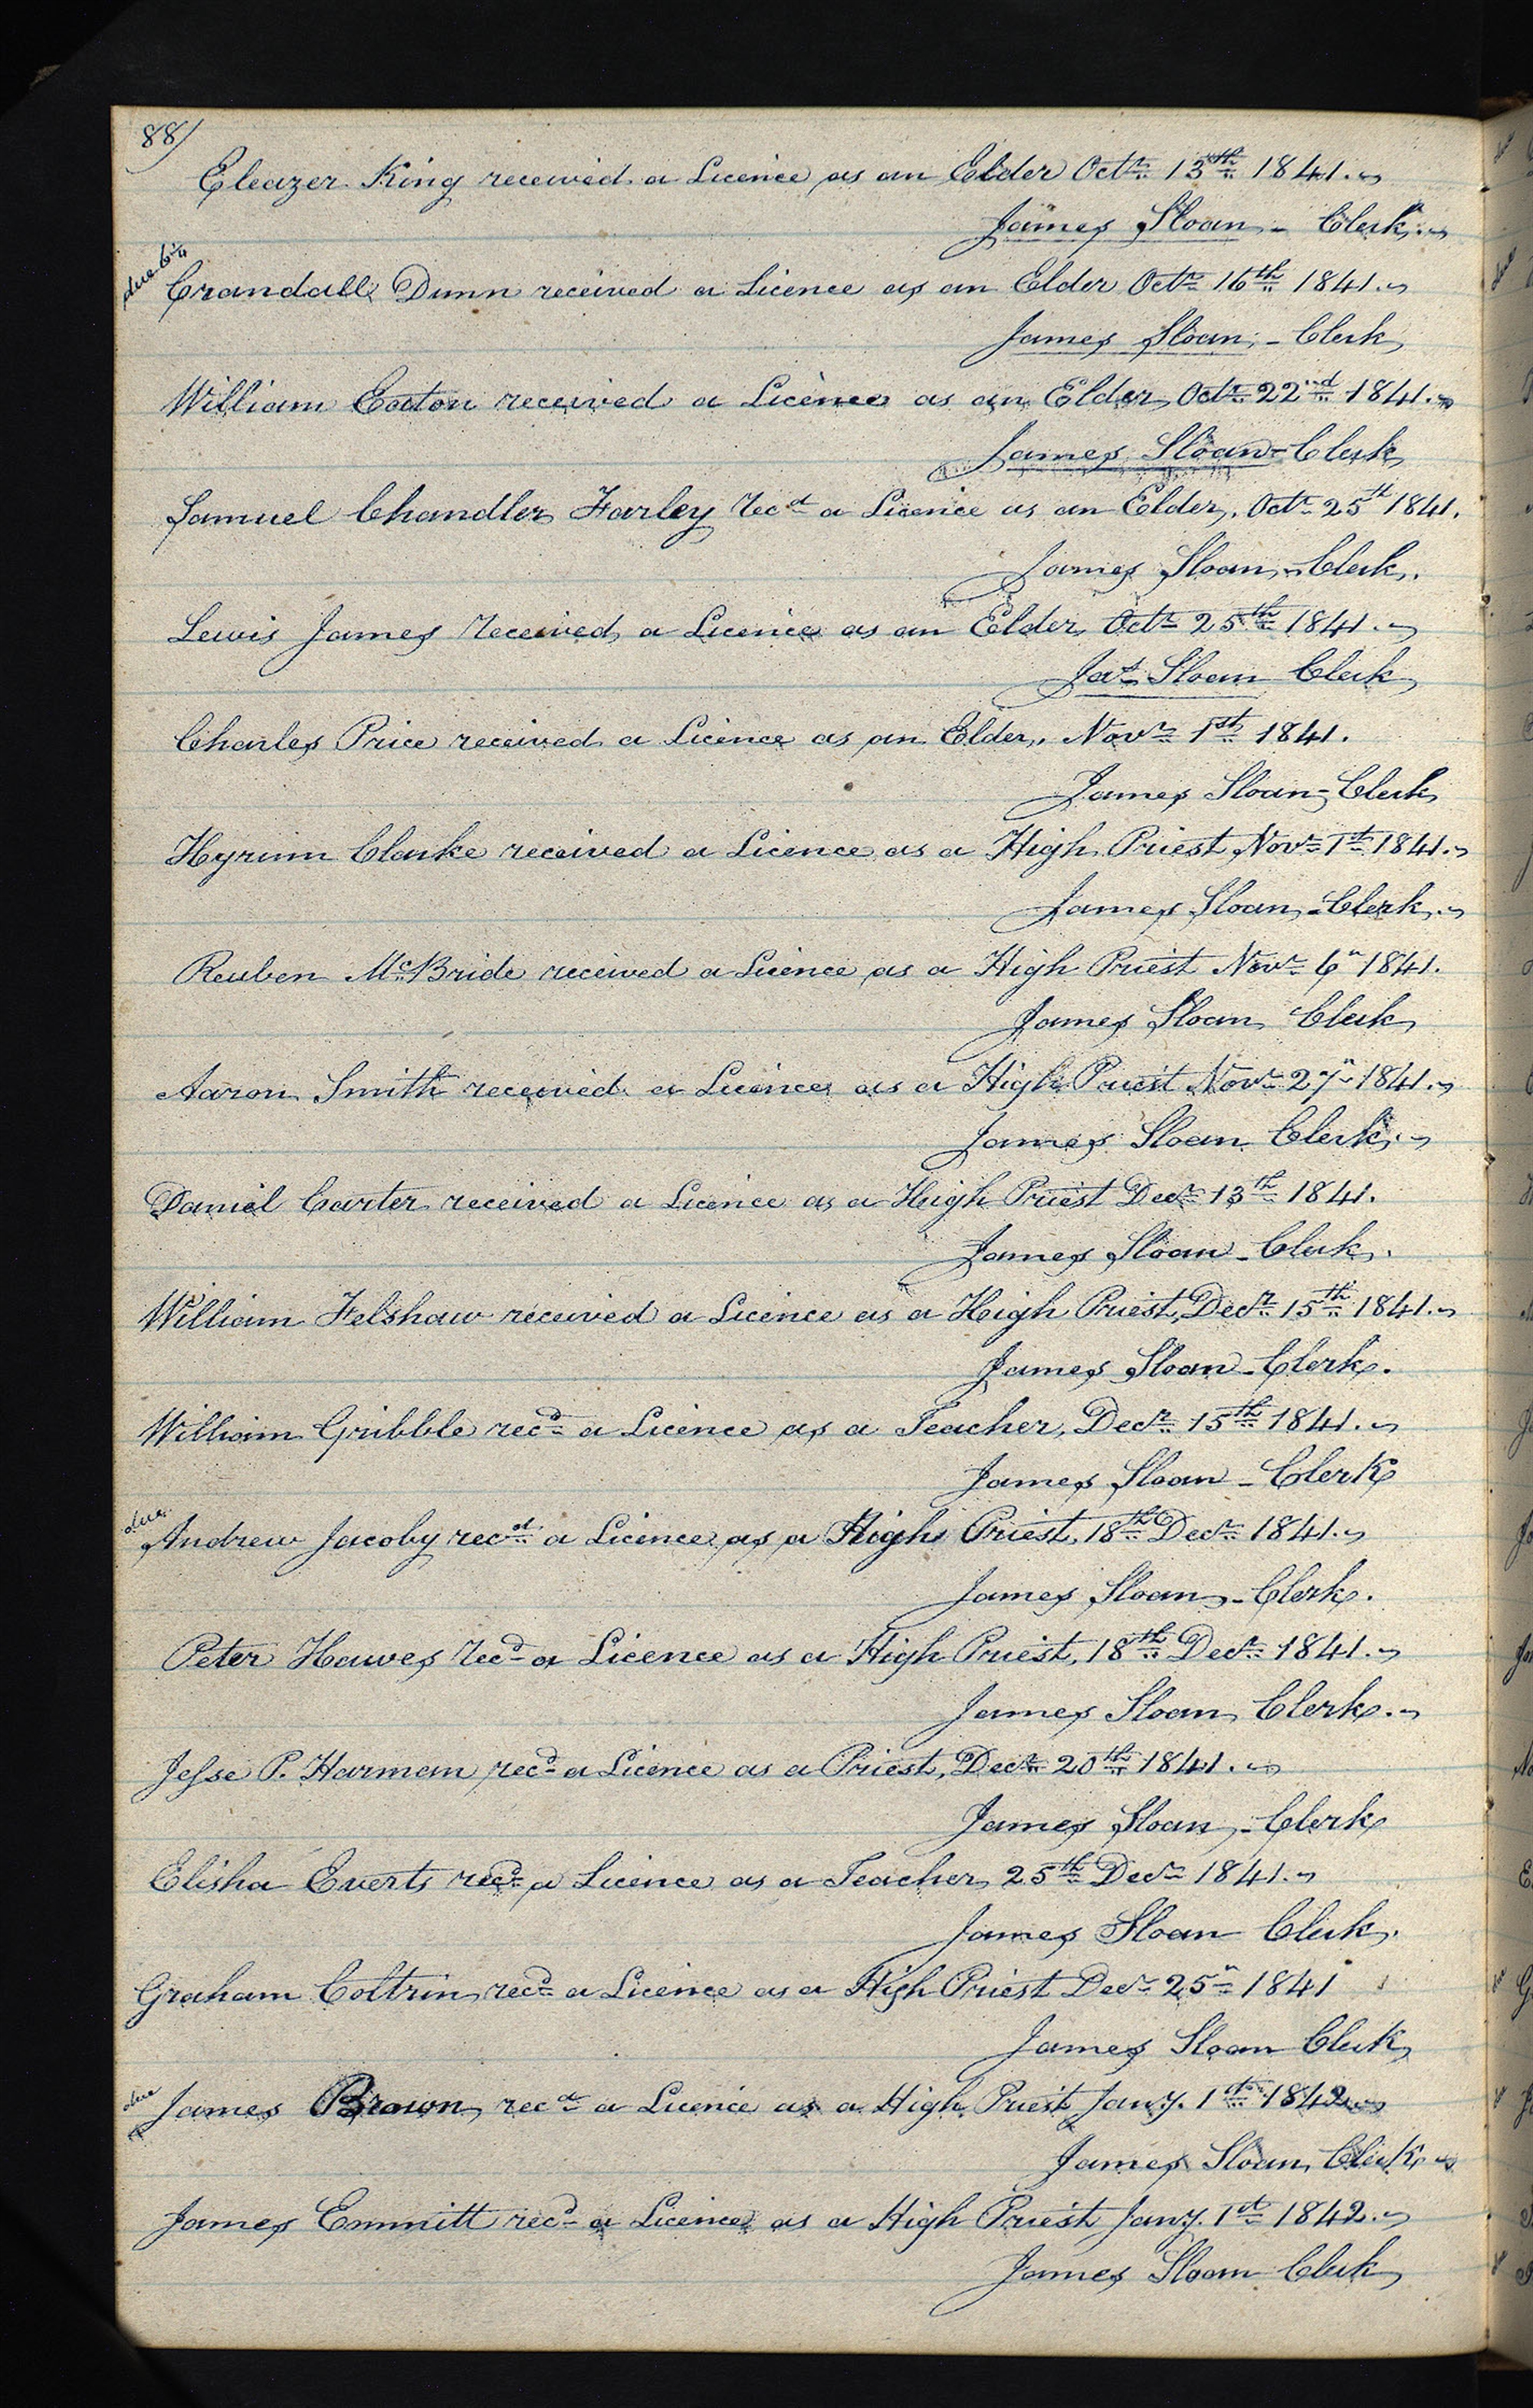 88/
Eleazer King received a Licence as an Elder Octr. 13th 1841.
James Sloan - Clerk.
due 6¼
Crandall Dunn received a Licence as an Elder Octr 16th 1841.
James Sloan, - Clerk
William Eaton received a Licence as an Elder, Octr 22nd 1841.
James Sloan - Clerk
Samuel Chandler Farley recd a Licence as an Elder, Octr 25th 1841.
James Sloan, - Clerk.
Lewis James received a Licence as an Elder Octr 25th 1841.
Jas Sloan Clerk
Charles Price received a Licence as an Elder, Novr 1st 1841.
James Sloan - Clerk
Hyrum Clarke received a Licence as a High Priest Novr 1st 1841.
James Sloan, - Clerk.
Reuben McBride received a Licence as a High Priest Novr 6" 1841.
James Sloan Clerk
Aaron Smith received a Licence as a High Priest Novr 27" 1841.
James Sloan Clerk.
Daniel Carter received a Licence as a High Priest Decr 13th 1841.
James Sloan - Clerk.
William Felshaw received a Licence as a High Priest, Decr 15th 1841.
James Sloan - Clerk.
William Gribble recd a Licence as a Teacher, Decr 15th 1841.
James Sloan - Clerk
due
Andrew Jacoby recd a Licence as a High Priest, 18th Decr 1841.
James Sloan, - Clerk.
Peter Hawes recd a Licence as a High Priest, 18th Decr 1841.
James Sloan, Clerk.
Jesse P. Harman recd a Licence as a Priest, Decr 20th 1841.
James Sloan, - Clerk
Elisha Everts recd a Licence as a Teacher, 25th Decr 1841.
James Sloan Clerk.
Graham Coltrin, recd a Licence as a High Priest Decr 25" 1841
James Sloan Clerk
due
James Brown, recd a Licence as a High Priest Jany. 1st 1842
James Sloan, Clerk
James Emmitt recd a Licence as a High Priest Jany. 1st 1842.
James Sloan Clerk